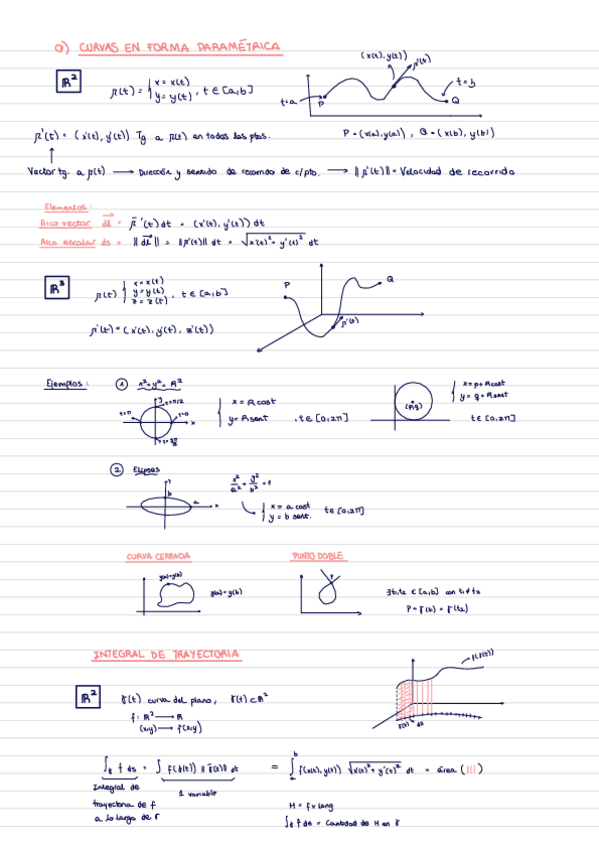 a) CURVAS EN FORMA PARAMÉTRICA
ℝ² r(t) = { x = x(t) y = y(t) , t ∈ [a,b]
(x(t), y(t)) r'(t)
t=a P t=b Q
r'(t) = (x'(t), y'(t)) Tg a r(t) en todos los ptos.
P = (x(a), y(a)) , Q = (x(b), y(b))
Vector tg. a r(t) → Dirección y sentido de recorrido de c/pto. → ||r'(t)|| = Velocidad de recorrido
Elementos:
Arco vector dl = r'(t) dt = (x'(t), y'(t)) dt
Arco escalar ds = ||dl|| = ||r'(t)|| dt = √x'(t)² + y'(t)² dt
ℝ³ r(t) { x = x(t) y = y(t) z = z(t) , t ∈ [a,b]
P Q r'(t)
r'(t) = (x'(t), y'(t), z'(t))
Ejemplos: ① x² + y² = R²
y t=π/2 t=π t=0 x t=3π/2
{ x = R cost y = R sent , t ∈ [0,2π]
(p,q)
{ x = p + R cost y = q + R sent
t ∈ [0,2π]
② Elipses
b a x
x²/a² + y²/b² = 1
{ x = a cost y = b sent. t ∈ [0,2π]
CURVA CERRADA PUNTO DOBLE
γ(a) = γ(b) γ(a) = γ(b) P
∃ t₁, t₂ ∈ [a,b] con t₁ ≠ t₂
P = γ(t₁) = γ(t₂)
INTEGRAL DE TRAYECTORIA
f(γ(t))
γ(t) ds
ℝ² γ(t) curva del plano, γ(t) ⊂ ℝ²
f: ℝ² → ℝ
(x,y) → f(x,y)
∫ f ds = ∫ f(γ(t)) ||γ'(t)|| dt = ∫ f(x(t), y(t)) √x'(t)² + y'(t)² dt = área (|||)
Integral de trayectoria de f a lo largo de γ
1 variable
M = f x long
∫ f ds = Cantidad de M en γ